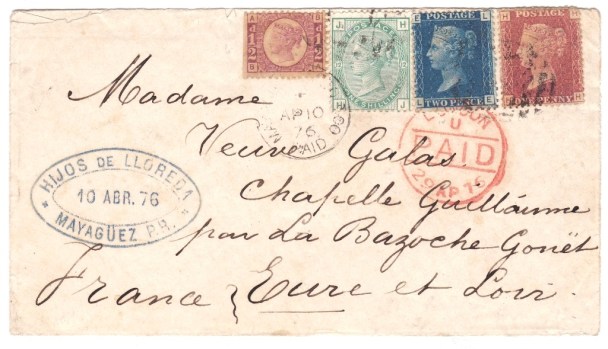 POSTAGE POSTAGE POSTAGE
ONE SHILLING TWO PENCE ONE PENNY
Madame
AP 10
76
PAID
LONDON
U
PAID
29 AP 76
Veuve Galas
HIJOS DE LLOREDA
10 ABR. 76
MAYAGÜEZ P.R.
Chapelle Guillaume
par La Bazoche Gouët
France } Eure et Loir.